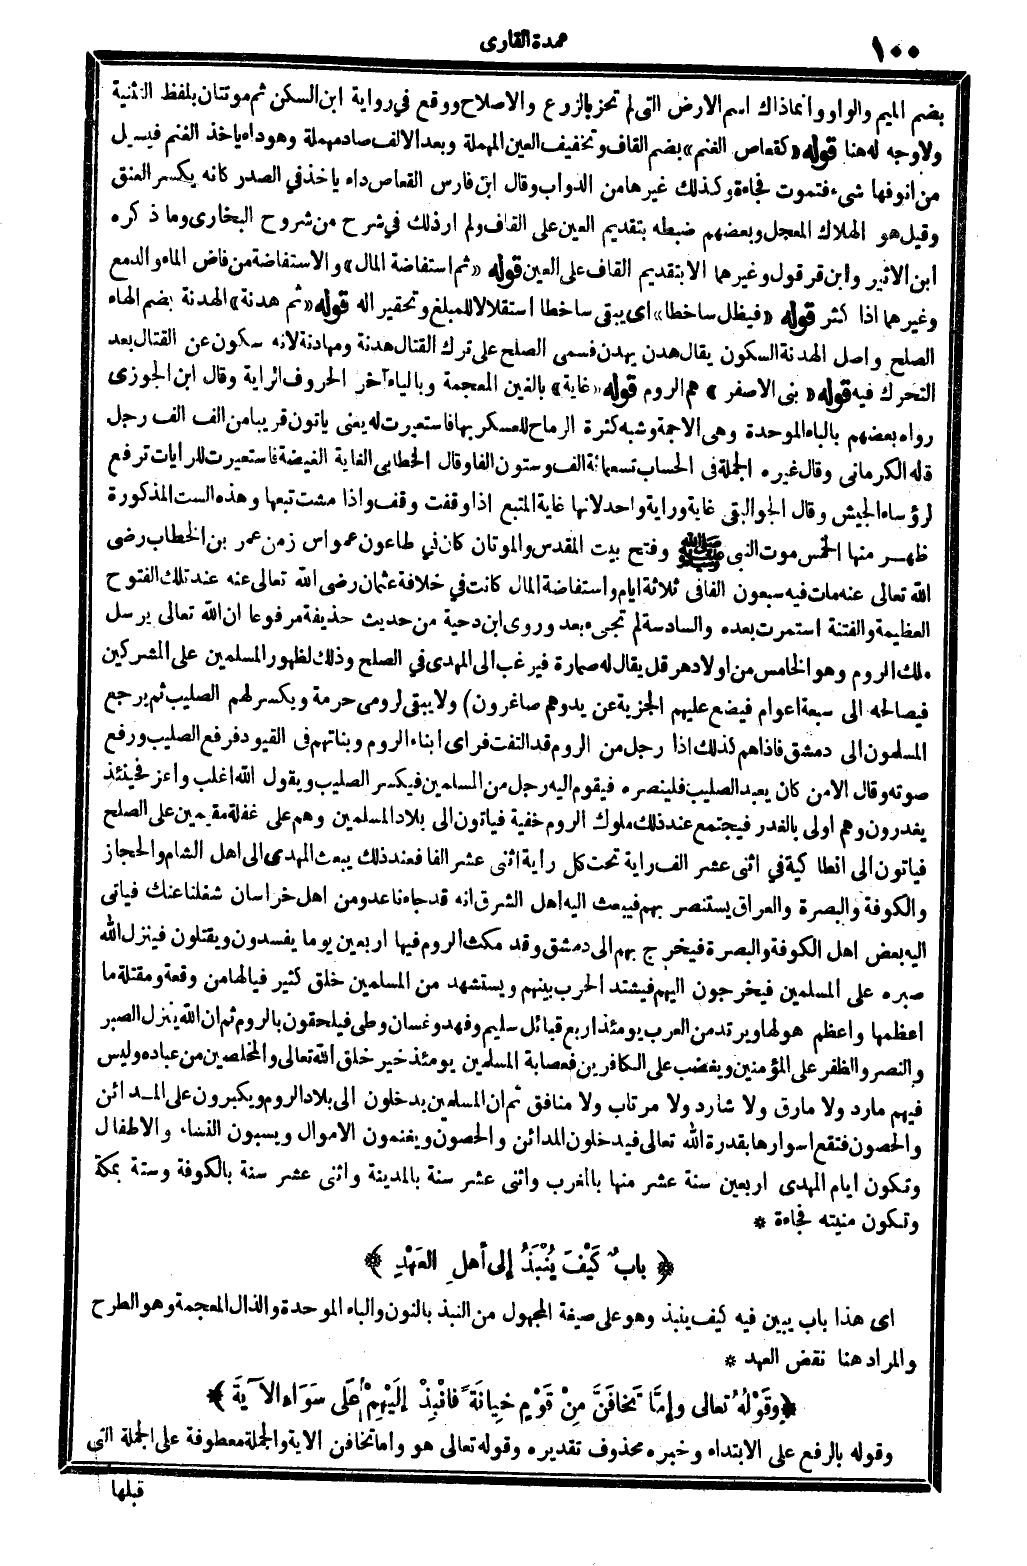 ١٠٠
عمدة القارى
بضم الميم والواو وانماذاك اسم الارض التى لم تحز بالزرع والاصلاح ووقع في رواية ابن السكن ثم موتتان بلفظ التثنية
ولاوجه له هنا قوله «كقعاص الغنم» بضم القاف وتخفيف العين المهملة وبعد الالف صاد مهملة وهو داء ياخذ الغنم فيسيل
من انوفها شىء فتموت فجاءة وكذلك غيرها من الدواب وقال ابن فارس القعاص داء ياخذ في الصدر كانه يكسر العنق
وقيل هو الهلاك المعجل وبعضهم ضبطه بتقديم العين على القاف ولم ار ذلك في شرح من شروح البخارى وما ذكره
ابن الاثير وابن قرقول وغيرهما الا بتقديم القاف على العين قوله «ثم استفاضة المال» والاستفاضة من فاض الماء والدمع
وغيرهما اذا كثر قوله «فيظل ساخطا» اى يبقى ساخطا استقلالا للمبلغ وتحقيرا له قوله «ثم هدنة» الهدنة بضم الهاء
الصلح واصل الهدنة السكون يقال هدن يهدن فسمى الصلح على ترك القتال هدنة ومهادنة لانه سكون عن القتال بعد
التحرك فيه قوله «بنى الاصفر» هم الروم قوله «غاية» بالغين المعجمة وبالياء آخر الحروف الراية وقال ابن الجوزى
رواه بعضهم بالباء الموحدة وهى الاجمة وشبه كثرة الرماح للعسكر بها فاستعيرت له يعنى ياتون قريبا من الف الف رجل
قله الكرمانى وقال غيره الجملة فى الحساب تسعمائة الف وستون الفا وقال الخطابى الغاية الغيضة فاستعيرت للرايات ترفع
لرؤساء الجيش وقال الجواليقى غاية وراية واحد لانها غاية المتبع اذا وقفت وقف واذا مشت تبعها وهذه الست المذكورة
ظهر منها الخمس موت النبى ﷺ وفتح بيت المقدس والموتان كان في طاعون عمواس زمن عمر بن الخطاب رضى
الله تعالى عنه مات فيه سبعون الفا فى ثلاثة ايام واستفاضة المال كانت في خلافة عثمان رضى الله تعالى عنه عند تلك الفتوح
العظيمة والفتنة استمرت بعده والسادسة لم تجىء بعد وروى ابن دحية من حديث حذيفة مرفوعا ان الله تعالى يرسل
ملك الروم وهو الخامس من اولاد هرقل يقال له صمارة فيرغب الى المهدى في الصلح وذلك لظهور المسلمين على المشركين
فيصالحه الى سبعة اعوام فيضع عليهم الجزية عن يد وهم صاغرون) ولا يبقى لرومى حرمة ويكسر لهم الصليب ثم يرجع
المسلمون الى دمشق فاذاهم كذلك اذا رجل من الروم قد التفت فراى ابناء الروم وبناتهم فى القيود فرفع الصليب ورفع
صوته وقال الا من كان يعبد الصليب فلينصره فيقوم اليه رجل من المسلمين فيكسر الصليب ويقول الله اغلب واعز فحينئذ
يغدرون وهم اولى بالغدر فيجتمع عند ذلك ملوك الروم خفية فياتون الى بلاد المسلمين وهم على غفلة مقيمين على الصلح
فياتون الى انطاكية في اثنى عشر الف راية تحت كل راية اثنى عشر الفا فعند ذلك يبعث المهدى الى اهل الشام والحجاز
والكوفة والبصرة والعراق يستنصر بهم فيبعث اليه اهل الشرق انه قد جاءنا عدو من اهل خراسان شغلنا عنك فياتى
اليه بعض اهل الكوفة والبصرة فيخرج بهم الى دمشق وقد مكث الروم فيها اربعين يوما يفسدون ويقتلون فينزل الله
صبره على المسلمين فيخرجون اليهم فيشتد الحرب بينهم ويستشهد من المسلمين خلق كثير فيالها من وقعة ومقتلة ما
اعظمها واعظم هولها ويرتد من العرب يومئذ اربع قبائل سليم وفهد وغسان وطى فيلحقون بالروم ثم ان الله ينزل الصبر
والنصر والظفر على المؤمنين ويغضب على الكافرين فعصابة المسلمين يومئذ خير خلق الله تعالى والمخلصين من عباده وليس
فيهم مارد ولا مارق ولا شارد ولا مرتاب ولا منافق ثم ان المسلمين يدخلون الى بلاد الروم ويكبرون على المدائن
والحصون فتقع اسوارها بقدرة الله تعالى فيدخلون المدائن والحصون ويغنمون الاموال ويسبون النساء والاطفال
وتكون ايام المهدى اربعين سنة عشر منها بالمغرب واثنى عشر سنة بالمدينة واثنى عشر سنة بالكوفة وستة بمكة
وتكون منيته فجاءة *
﴿ بابٌ كَيْفَ يُنْبَذُ إلى أهلِ العَهْدِ ﴾
اى هذا باب يبين فيه كيف ينبذ وهو على صيغة المجهول من النبذ بالنون والباء الموحدة والذال المعجمة وهو الطرح
والمراد هنا نقض العهد *
﴿وقَوْلُهُ تعالى وإمَّا تَخافَنَّ مِنْ قَوْمٍ خِيانَةً فانْبِذْ إلَيْهِمْ عَلَى سَوَاءٍ الآيَةَ ﴾
وقوله بالرفع على الابتداء وخبره محذوف تقديره وقوله تعالى هو واما تخافن الاية والجملة معطوفة على الجملة التى
قبلها